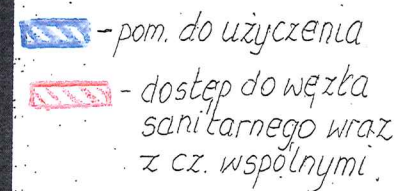 - pom. do użyczenia
- dostęp do węzła
sanitarnego wraz
z cz. wspólnymi.